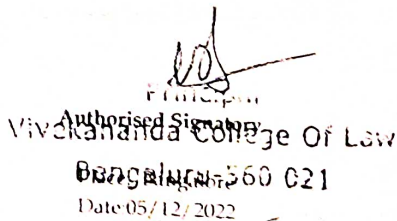 Principal
Authorised Signatory
Vivekananda College Of Law
Bengaluru-560 021
Place: Bangalore
Date:05/12/2022